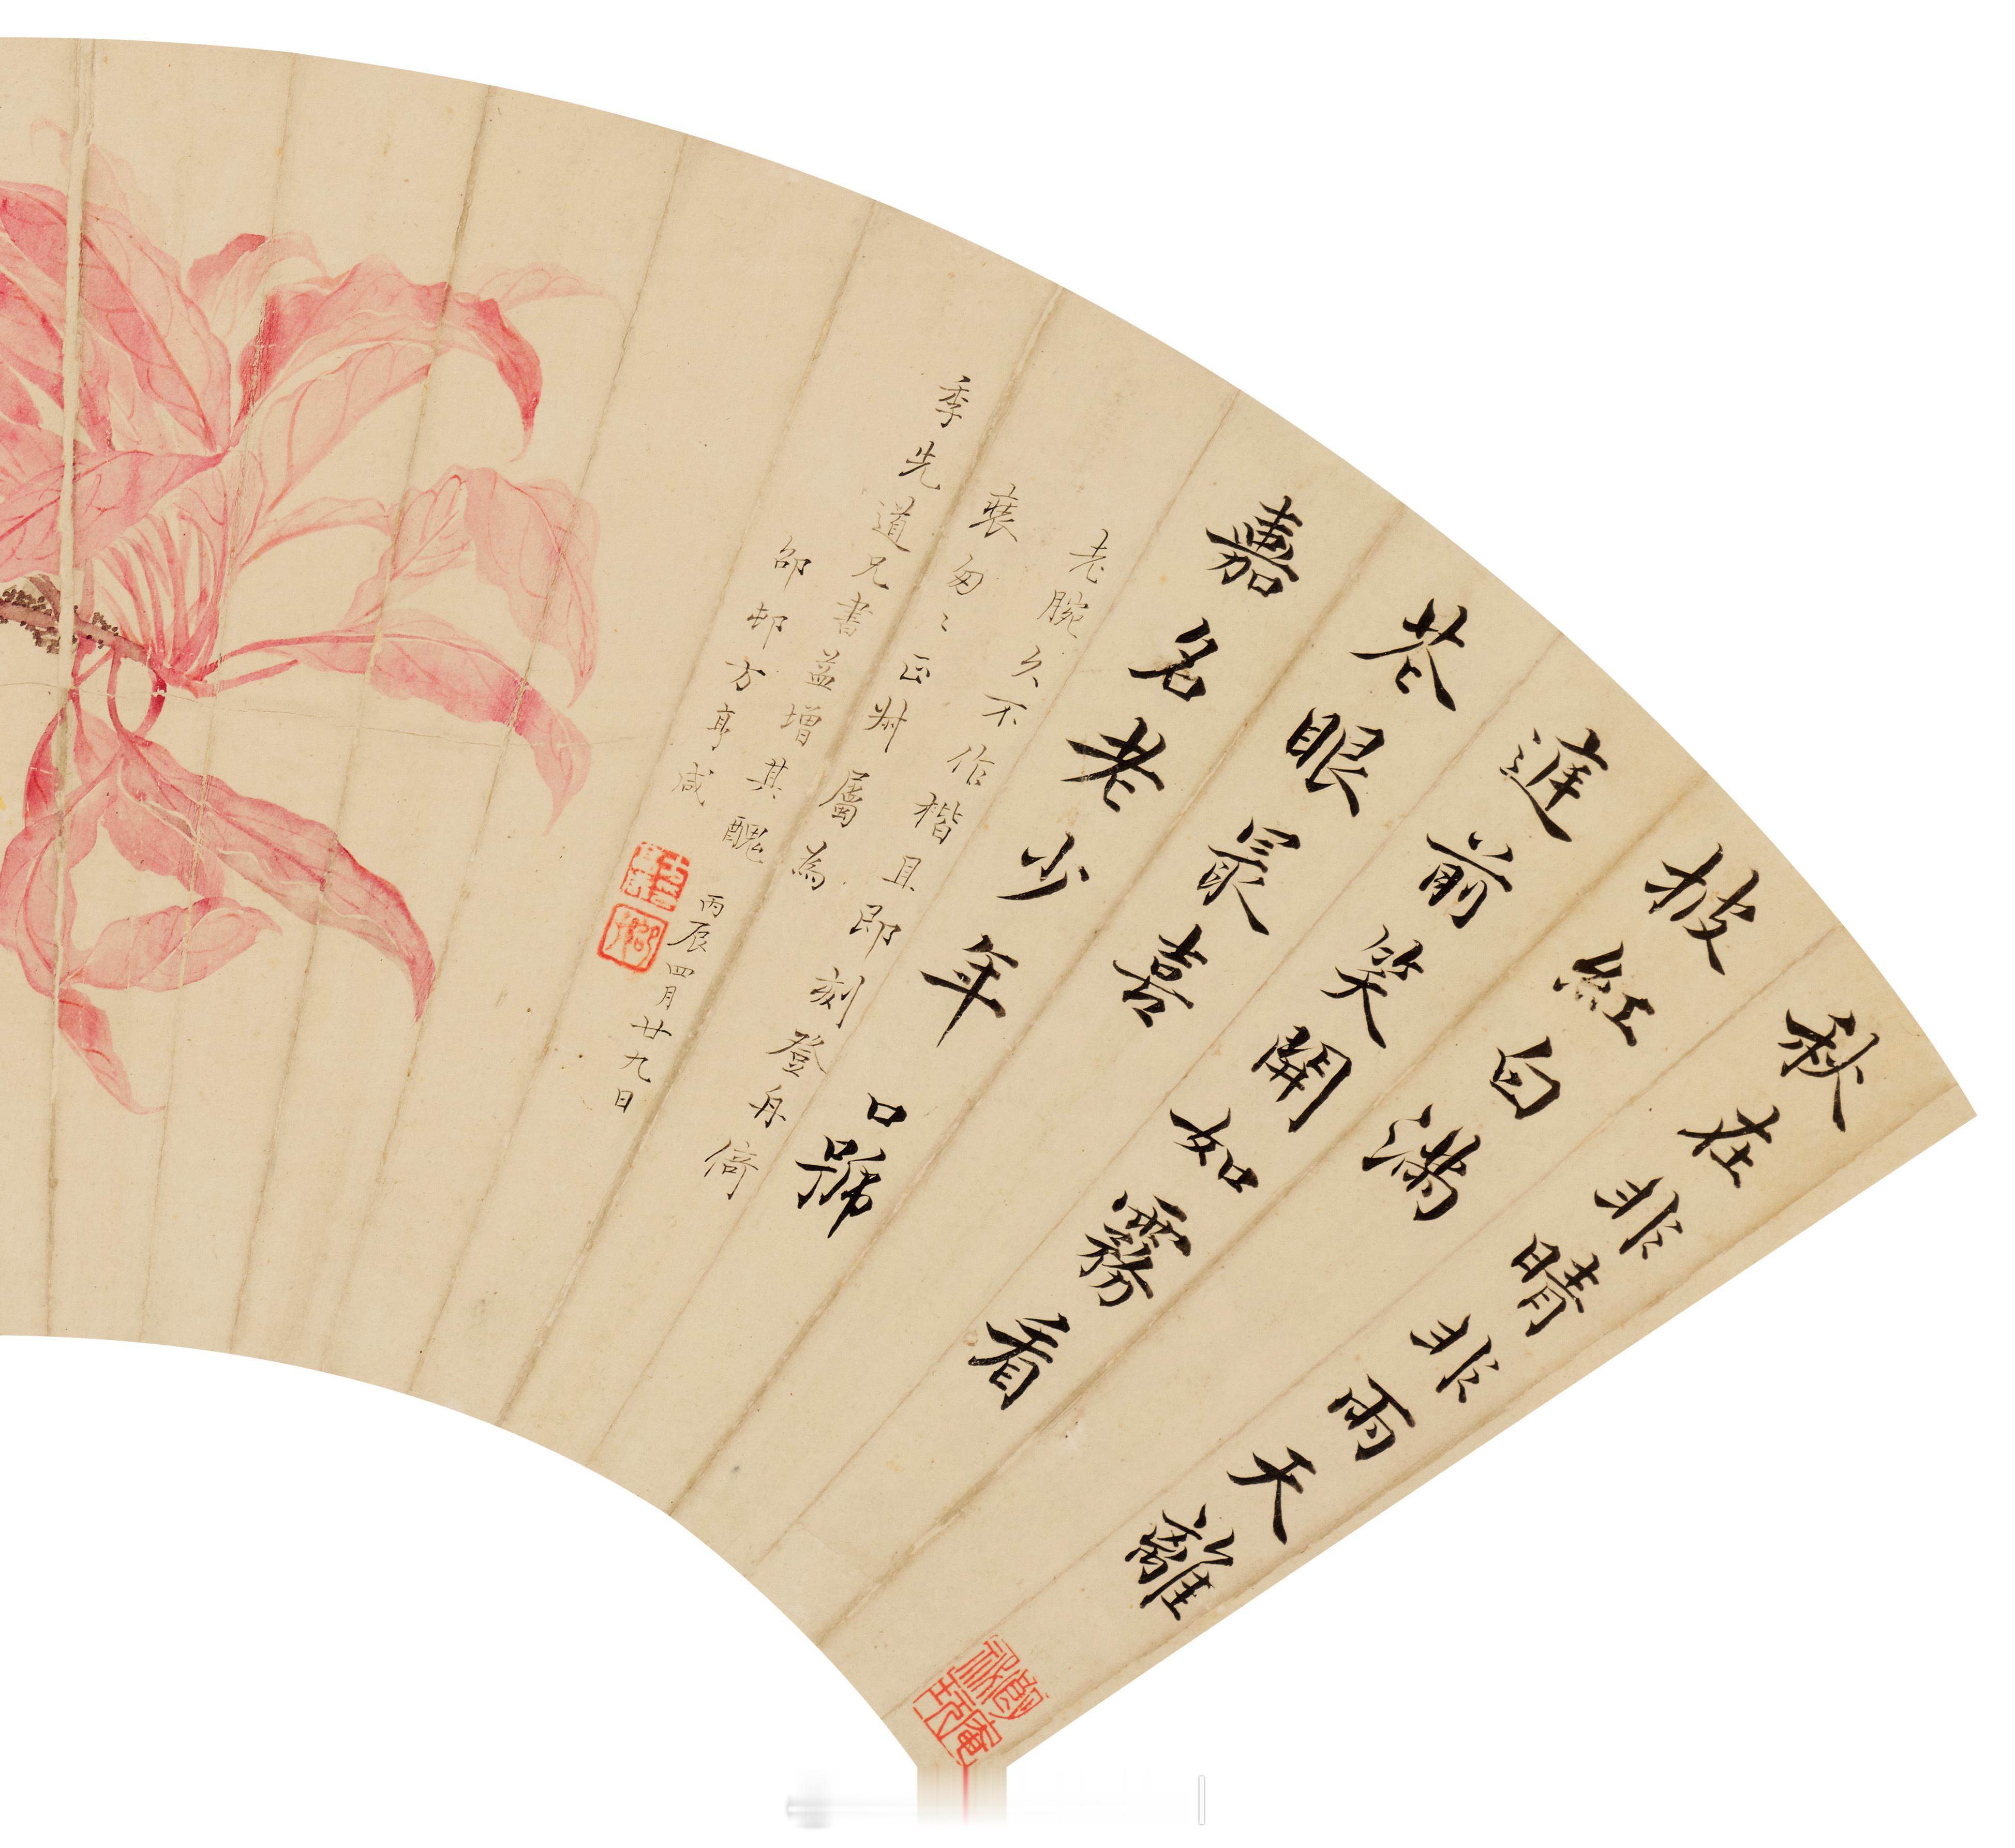 秋在非晴非雨天離
披紅白滿
筵前笑開如霧看
花眼最喜
嘉名老少年 口號
老腕久不作楷且即刻登舟倚
裝匆〻正州屬為
季先道兄書益增其醜 丙辰四月廿九日
邵邨方亨咸